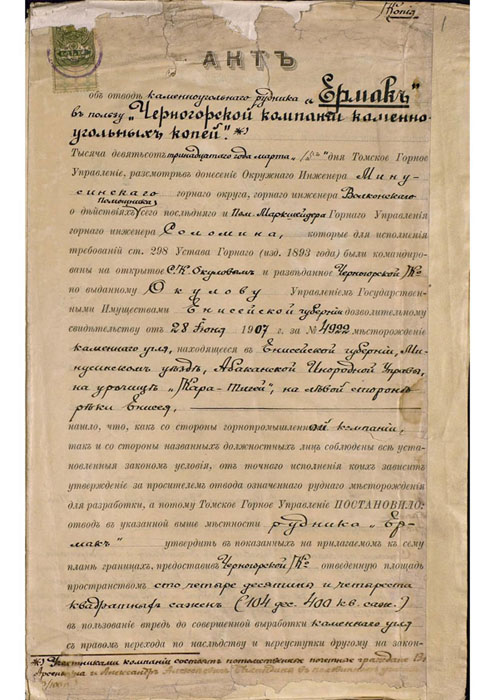 Копія
1
АКТЪ
объ отводѣ каменноугольнаго рудника „Ермакъ"
въ пользу „Черногорской компаніи каменно-
угольныхъ копей". *)
Тысяча девятьсотъ тринадцатаго года марта дня Томское Горное
Управленіе, разсмотрѣвъ донесеніе Окружнаго Инженера Мину-
синскаго горнаго округа, горнаго инженера Волконскаго
о дѣйствіяхъ Помощника сего послѣдняго и Пом. Маркшейдера Горнаго Управленія
горнаго инженера Соломина, которые для исполненія
требованій ст. 298 Устава Горнаго (изд. 1893 года) были командиро-
ваны на открытое С.К. Окуловымъ и развѣданное Черногорской К°
по выданному Окулову Управленіемъ Государствен-
ными Имуществами Енисейской губерніи дозволительному
свидѣтельству отъ 28 Іюня 1907 г. за № 4922 мѣсторожденіе
каменнаго угля, находящееся въ Енисейской губерніи, Ми-
нусинскомъ уѣздѣ, Абаканской Инородной Управѣ,
на урочищѣ „Кара-Тигей", на лѣвой сторонѣ
рѣки Енисея,
нашло, что, какъ со стороны горнопромышленной компаніи,
такъ и со стороны названныхъ должностныхъ лицъ соблюдены всѣ уста-
новленныя закономъ условія, отъ точнаго исполненія коихъ зависитъ
утвержденіе за просителемъ отвода означеннаго руднаго мѣсторожденія
для разработки, а потому Томское Горное Управленіе ПОСТАНОВИЛО:
отводъ въ указанной выше мѣстности рудника „Ер-
макъ" утвердить въ показанныхъ на прилагаемомъ къ сему
планѣ границахъ, предоставивъ Черногорской К° отведенную площадь
пространствомъ сто четыре десятины и четыреста
квадратныхъ саженъ (104 дес. 400 кв. саж.)
въ пользованіе впредь до совершенной выработки каменнаго угля
съ правомъ перехода по наслѣдству и переуступки другому на закон-
*) Участниками компаніи состоятъ потомственные почетные граждане
и Александръ